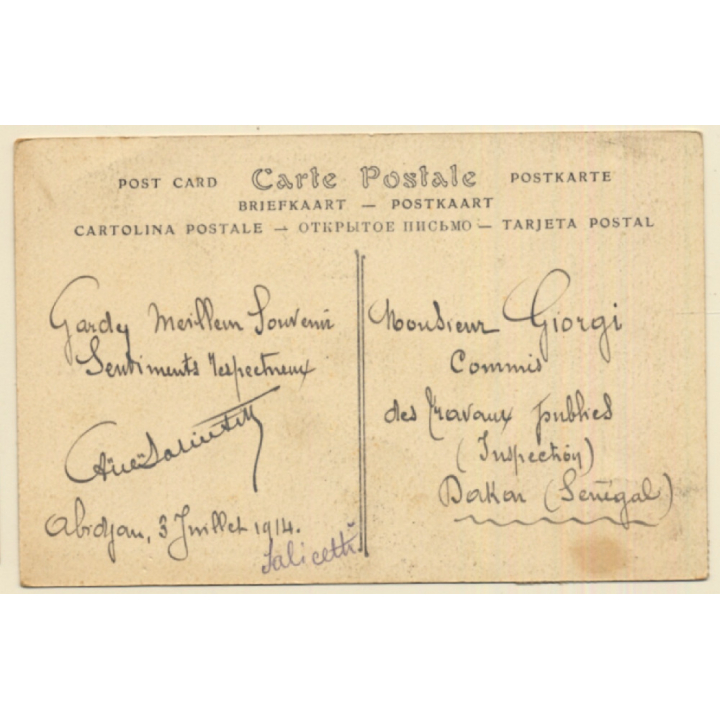 POST CARD Carte Postale POSTKARTE
BRIEFKAART — POSTKAART
CARTOLINA POSTALE — ОТКРЫТОЕ ПИСЬМО — TARJETA POSTAL
Gardez Meilleur Souvenir
Sentiments respectueux
Abidjan, 3 Juillet 1914.
Salicetti
Monsieur Giorgi
Commis
des travaux publics
(Inspection)
Dakar (Sénégal)